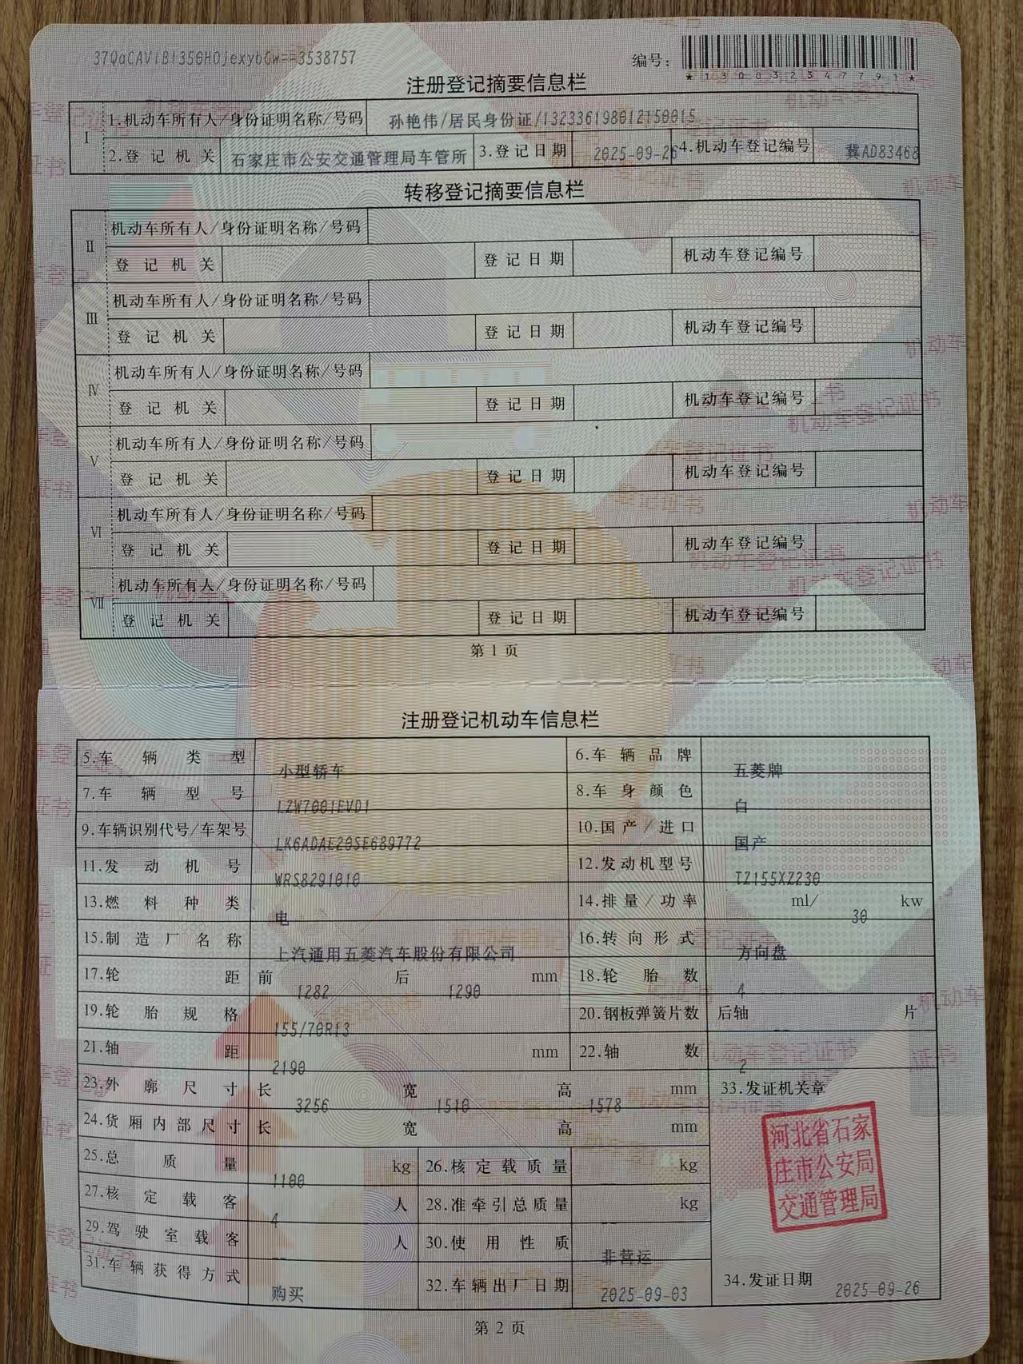 37QaCAViBi356HOjexybCw==3538757
编号：
*130032347791*
注册登记摘要信息栏
Ⅰ 1.机动车所有人/身份证明名称/号码 孙艳伟/居民身份证/132336198012150015
2.登记机关 石家庄市公安交通管理局车管所 3.登记日期 2025-09-26 4.机动车登记编号 冀AD83468
转移登记摘要信息栏
Ⅱ 机动车所有人/身份证明名称/号码
登记机关 登记日期 机动车登记编号
Ⅲ 机动车所有人/身份证明名称/号码
登记机关 登记日期 机动车登记编号
Ⅳ 机动车所有人/身份证明名称/号码
登记机关 登记日期 机动车登记编号
Ⅴ 机动车所有人/身份证明名称/号码
登记机关 登记日期 机动车登记编号
Ⅵ 机动车所有人/身份证明名称/号码
登记机关 登记日期 机动车登记编号
Ⅶ 机动车所有人/身份证明名称/号码
登记机关 登记日期 机动车登记编号
第1页
注册登记机动车信息栏
5.车辆类型 小型轿车 6.车辆品牌 五菱牌
7.车辆型号 LZW7001EVD1 8.车身颜色 白
9.车辆识别代号/车架号 LK6ADAE20SE689772 10.国产/进口 国产
11.发动机号 WRS8291010 12.发动机型号 TZ155XZ230
13.燃料种类 电 14.排量/功率 ml/ 30 kw
15.制造厂名称 上汽通用五菱汽车股份有限公司 16.转向形式 方向盘
17.轮距 前 1282 后 1290 mm 18.轮胎数 4
19.轮胎规格 155/70R13 20.钢板弹簧片数 后轴 -- 片
21.轴距 2190 mm 22.轴数 2
23.外廓尺寸 长 3256 宽 1510 高 1578 mm 33.发证机关章
24.货厢内部尺寸 长 宽 高 mm
25.总质量 1100 kg 26.核定载质量 kg
27.核定载客 4 人 28.准牵引总质量 -- kg
29.驾驶室载客 -- 人 30.使用性质 非营运
31.车辆获得方式 购买 32.车辆出厂日期 2025-09-03 34.发证日期 2025-09-26
河北省石家
庄市公安局
交通管理局
第2页